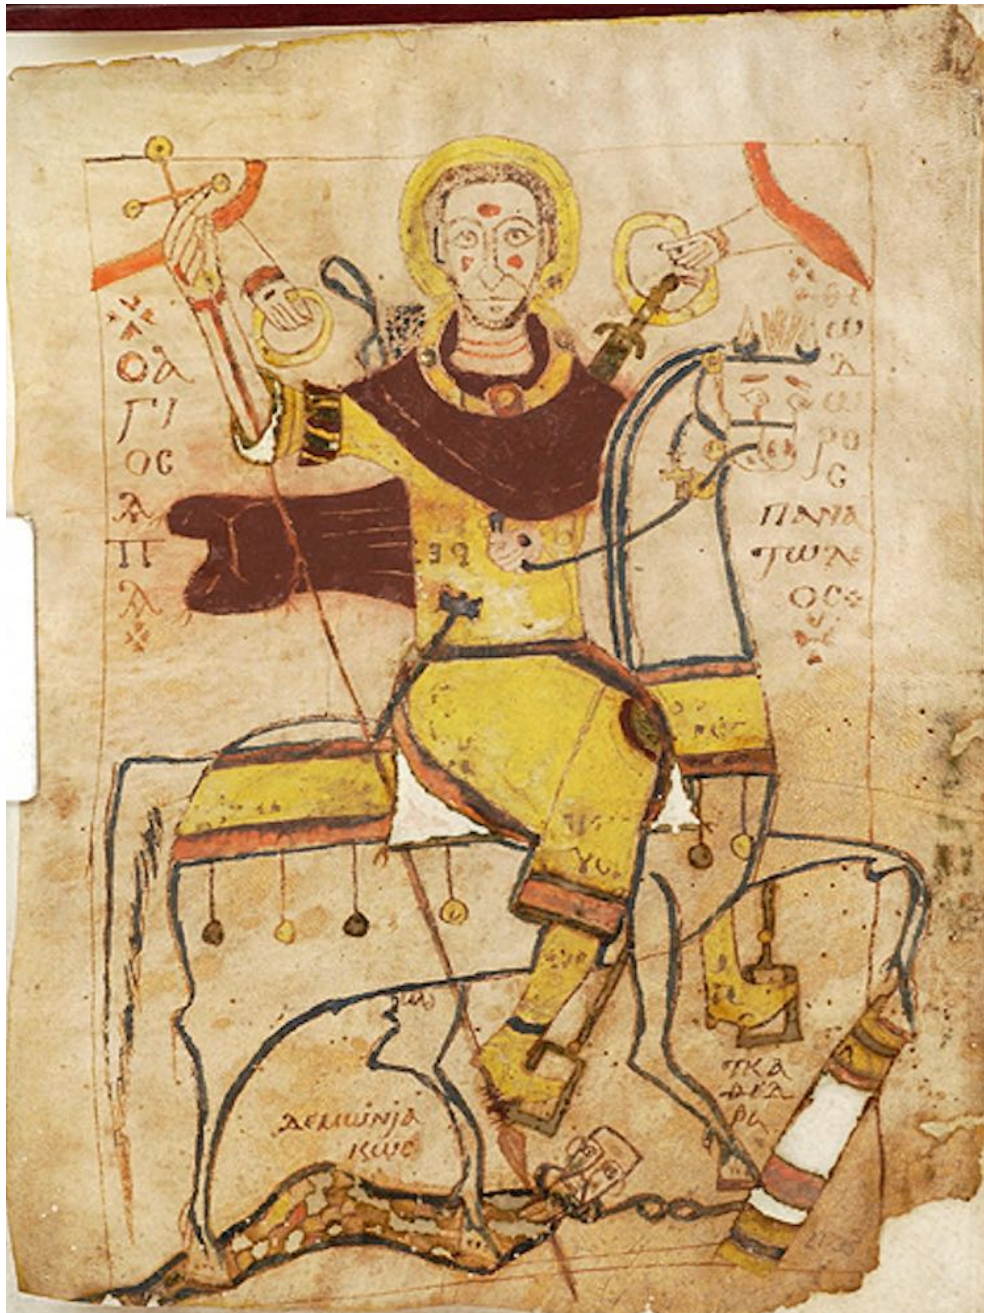 ⲟⲁ
ⲅⲓ
ⲟⲥ
ⲁ
ⲡ
ⲁ
ⲑⲉ
ⲱ
ⲇ
ⲱ
ⲣⲟ
ⲥ
ⲡⲁⲛⲁ
ⲧⲱⲗⲉ
ⲟⲥ
ⲇⲉⲙⲱⲛⲓⲁ
ⲕⲱⲥ
ⲧⲕⲁ
ⲑⲉⲇ